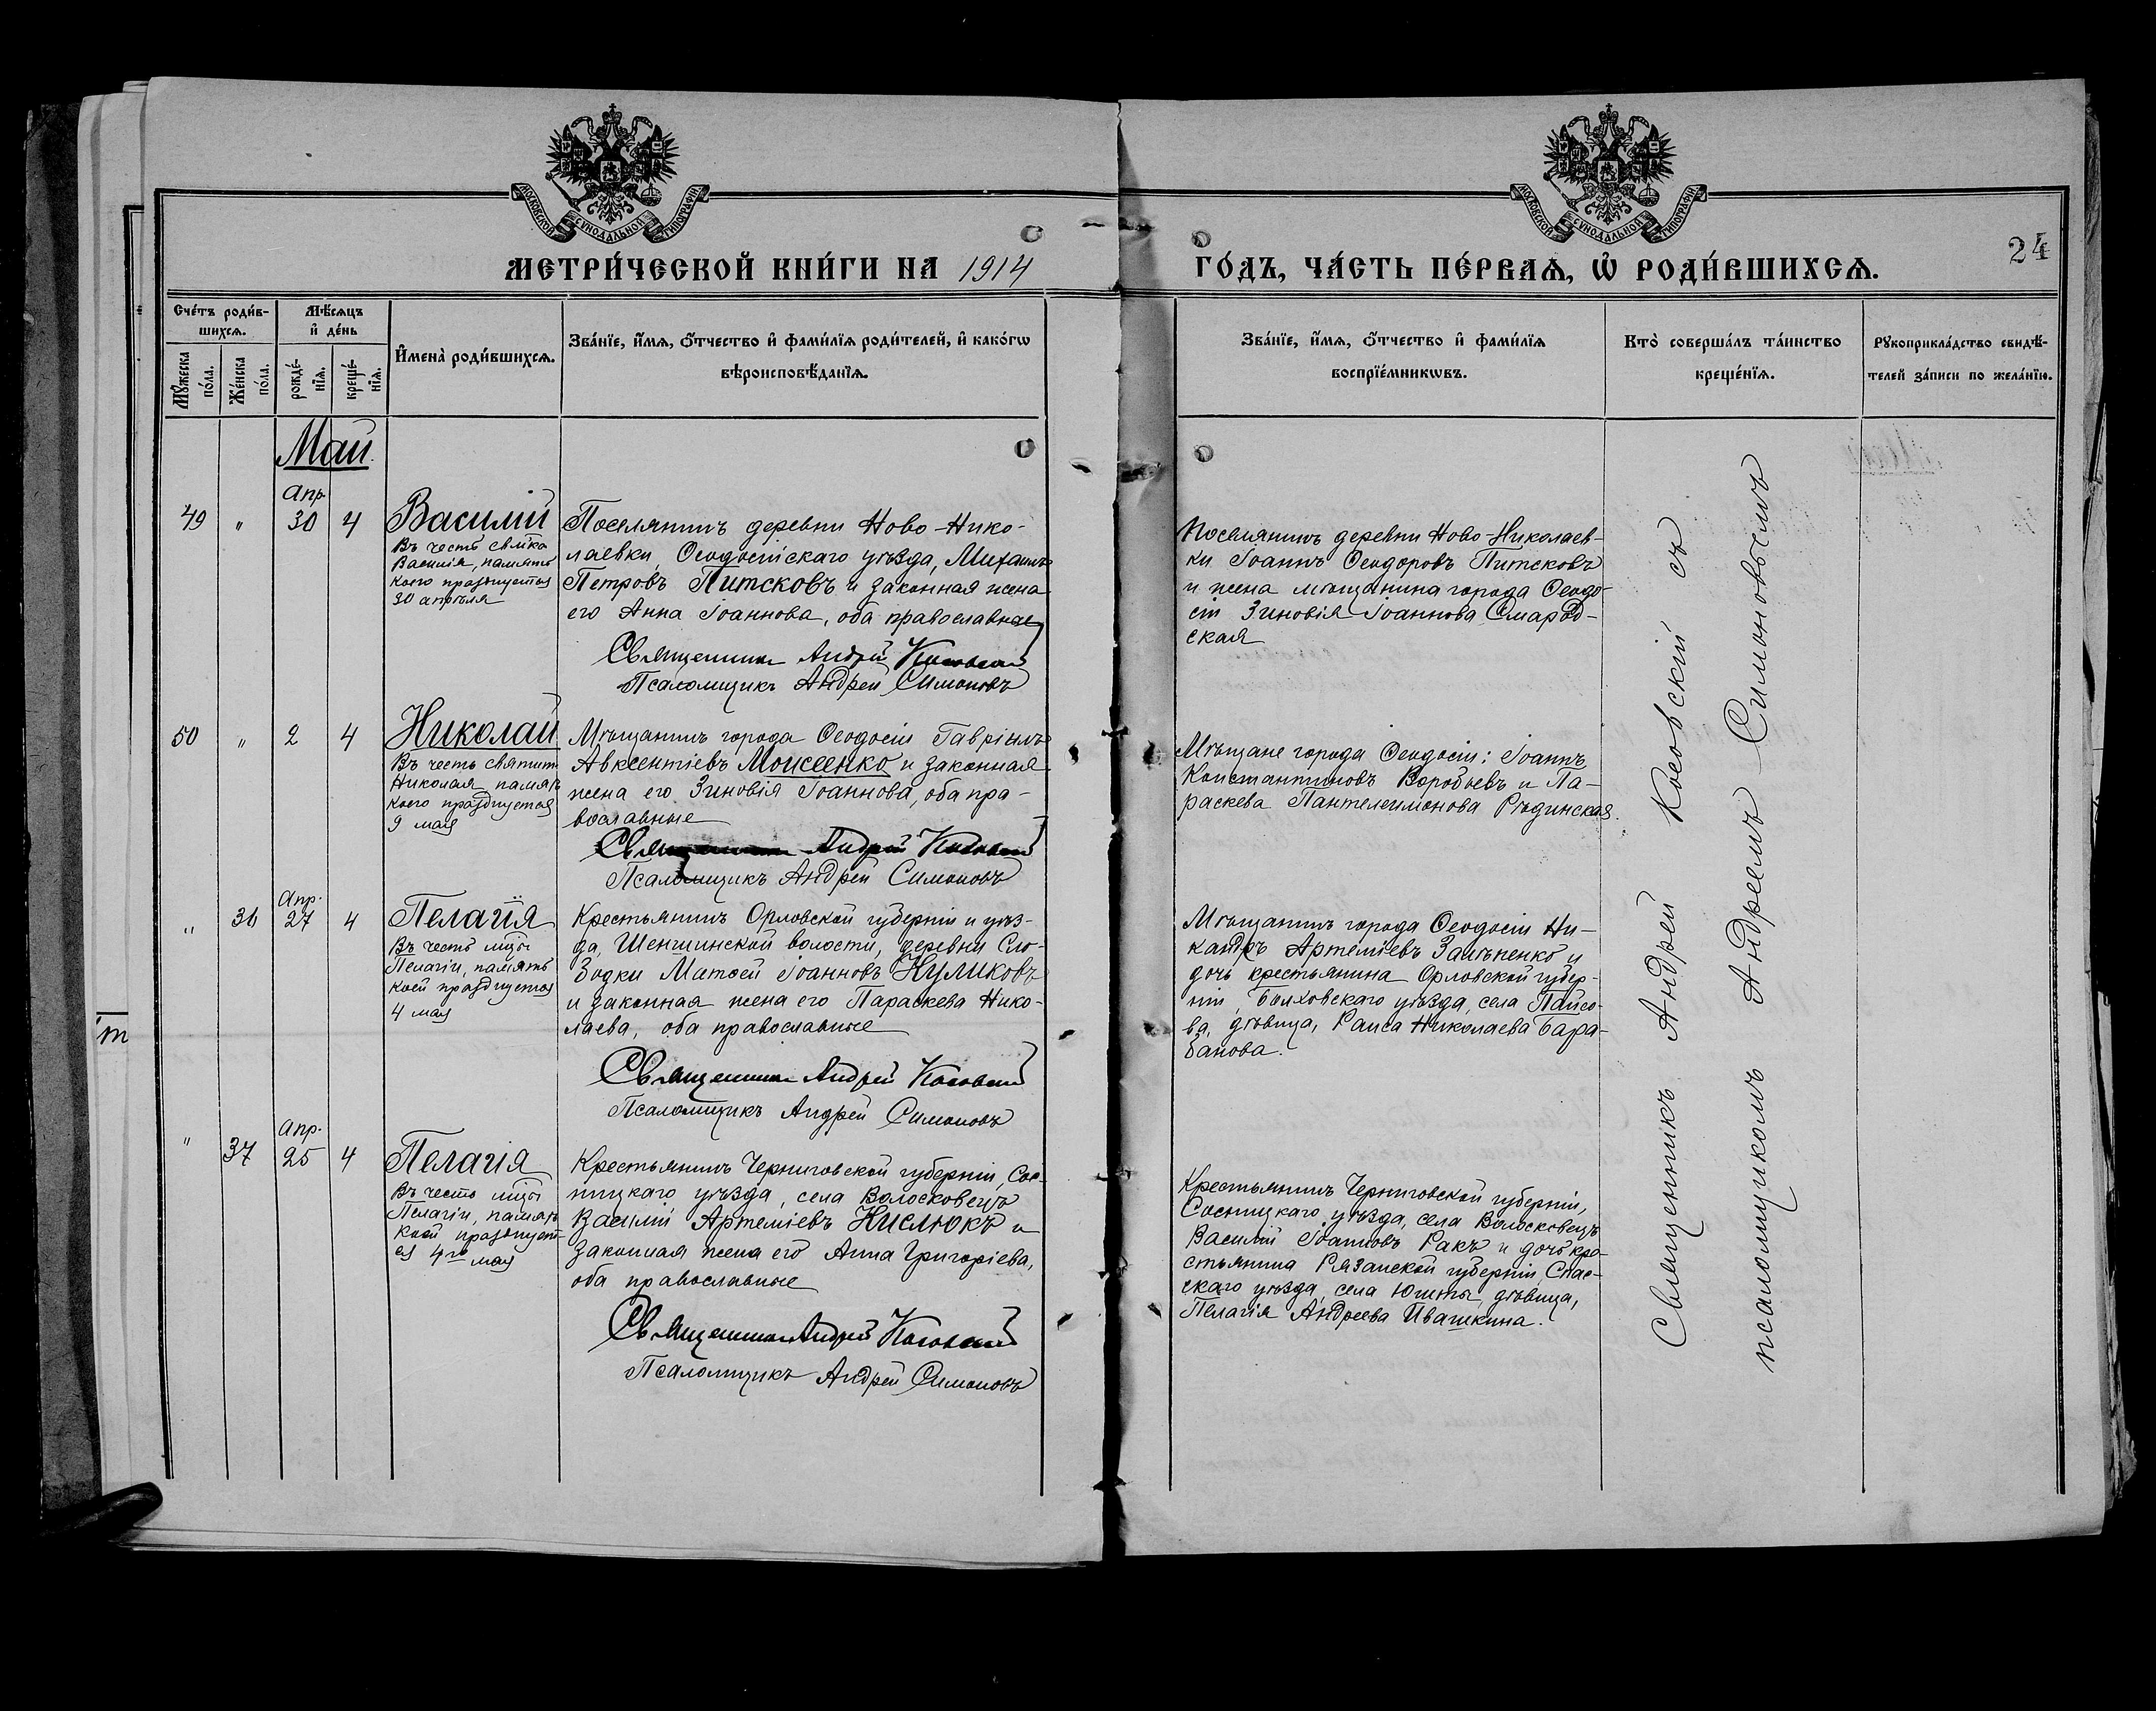 МОСКОВСКОЙ СѴНОДАЛЬНОЙ ТИПОГРАФІИ
МОСКОВСКОЙ СѴНОДАЛЬНОЙ ТИПОГРАФІИ
МЕТРИ́ЧЕСКОЙ КНИ́ГИ НА 1914
ГО́ДЪ, ЧА́СТЬ ПЕ́РВАѦ, Ѡ҆ РОДИ́ВШИХСѦ.
24
Сче́тъ роди́в-
шихсѧ.
Мꙋ́жеска по́ла.
Же́нска по́ла.
Мѣ́сѧцъ
и҆ де́нь
рожде́-
нїѧ.
креще́-
нїѧ.
И҆мена̀ роди́вшихсѧ.
Зва́нїе, и҆́мѧ, ѻ҆́тчество и҆ фами́лїѧ роди́телей, и҆ како́гѡ
вѣроисповѣ́данїѧ.
Зва́нїе, и҆́мѧ, ѻ҆́тчество и҆ фами́лїѧ
воспрїе́мникѡвъ.
Кто̀ соверша́лъ та́инство
креще́нїѧ.
Рꙋкоприкла́дство свидѣ́-
телей за́писи по жела́нїю.
Май
49 " Апр. 30 4
Василій
Въ честь свмка
Василія, память
коего празднуется
30 апрѣля
Поселянинъ деревни Ново-Нико-
лаевки, Ѳеодосійскаго уѣзда, Михаилъ
Петровъ Питсковъ и законная жена
его Анна Іоаннова, оба православные
Священникъ Андрей Косовскій
Псаломщикъ Андрей Симоновъ
Поселянинъ деревни Ново-Николаев-
ки Іоаннъ Ѳеодоровъ Питсковъ
и жена мѣщанина города Ѳеодо-
сіи Зиновія Іоаннова Смарод-
ская
50 " 2 4
Николай
Въ честь святит.
Николая память
коего празднуется
9 мая
Мѣщанинъ города Ѳеодосіи Гавріилъ
Авксентіевъ Моисеенко и законная
жена его Зиновія Іоаннова, оба пра-
вославные
Священникъ Андрей Косовскій
Псаломщикъ Андрей Симоновъ
Мѣщане города Ѳеодосіи: Іоаннъ
Константиновъ Воробьевъ и Па-
раскева Пантелеимонова Рѣдинская.
" 36 Апр. 27 4
Пелагія
Въ честь мцы
Пелагіи, память
коей празднуется
4 мая
Крестьянинъ Орловской губерніи и уѣз-
да, Шеншинской волости, деревни Сло-
бодки Матѳей Іоанновъ Куликовъ
и законная жена его Параскева Нико-
лаева, оба православные
Священникъ Андрей Косовскій
Псаломщикъ Андрей Симоновъ
Мѣщанинъ города Ѳеодосіи Ни-
кандръ Артеміевъ и
дочь крестьянина Орловской губер-
ніи, Болховскаго уѣзда, села Пайсо-
ва, дѣвица, Раиса Николаева Бара-
банова.
" 37 Апр. 25 4
Пелагія
Въ честь мцы
Пелагіи, память
коей празднует-
ся 4го мая
Крестьянинъ Черниговской губерніи, Сос-
ницкаго уѣзда, села Волосковецъ
Василій Артеміевъ Кислюкъ и
законная жена его Анна Григоріева,
оба православные
Священникъ Андрей Косовскій
Псаломщикъ Андрей Симоновъ
Крестьянинъ Черниговской губерніи,
Сосницкаго уѣзда, села Волосковецъ
Василій Іоанновъ Ракъ и дочь кре-
стьянина Рязанской губерніи, Спас-
скаго уѣзда, села Юшты, дѣвица,
Пелагія Андреева Ивашкина.
Священникъ Андрей Косовскій съ
псаломщикомъ Андреемъ Симоновымъ
т